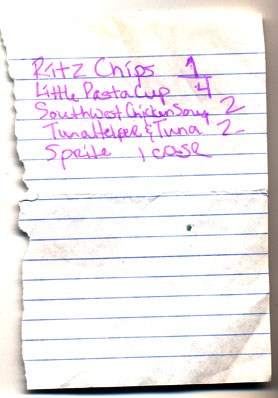 Ritz Chips 1
Little Pasta Cup 4
Southwest Chicken Soup 2
Tuna Helper & Tuna 2
Sprite 1 case